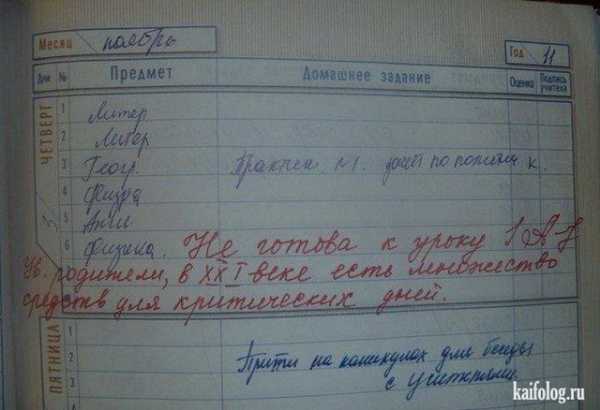 Месяц ноябрь
Год 11
Дни № Предмет Домашнее задание Оценка Подпись учителя
ЧЕТВЕРГ 3
1 Литер
2 Литер
3 Геогр. Практич.
4 Физра
5 Англ
6 Физика. Не готова к уроку
Ув. родители, в XXI веке есть множество
средств для критических дней.
ПЯТНИЦА
1
2 Прийти на каникулах для беседы
3 с учителями
kaifolog.ru